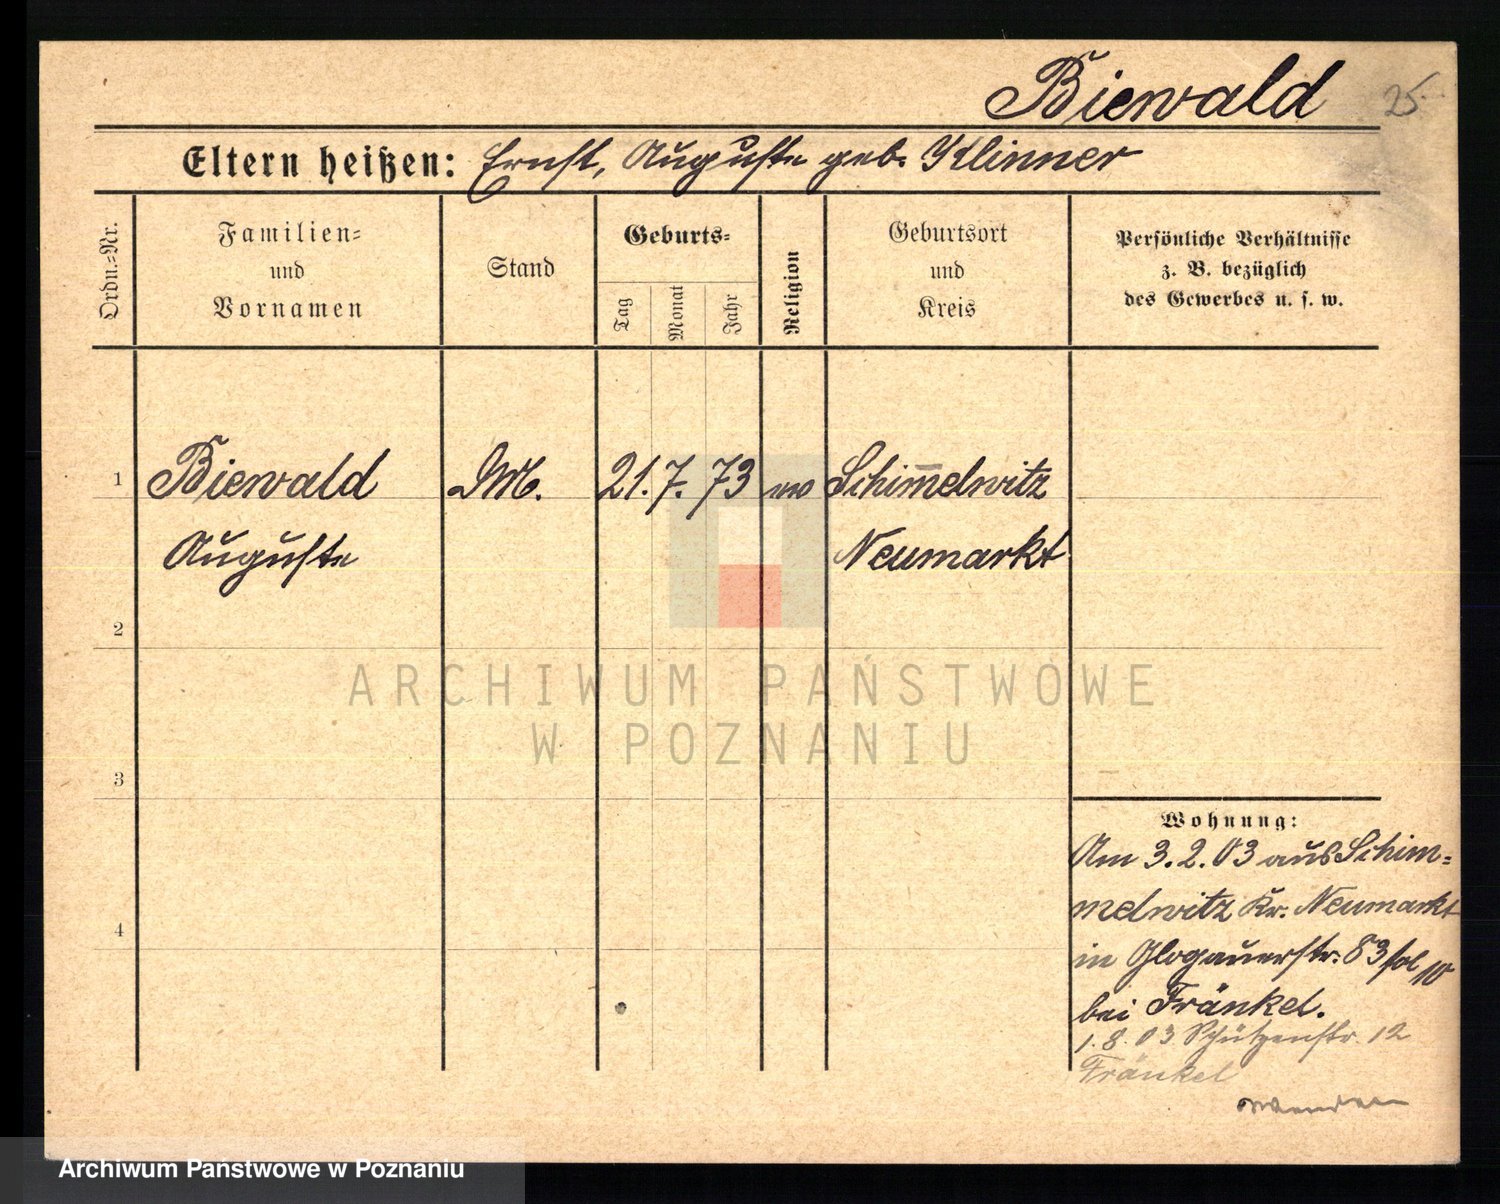 Biewald 25
Eltern heißen: Ernst, Auguste geb. Klinner
Ordn.=Nr.
Familien=
und
Vornamen
Stand
Geburts=
Tag
Monat
Jahr
Religion
Geburtsort
und
Kreis
Persönliche Verhältnisse
z. B. bezüglich
des Gewerbes u. s. w.
1 Biewald DM. 21. 7. 73 Schim̅elwitz
Auguste Neumarkt
2
ARCHIWUM PAŃSTWOWE
W POZNANIU
3
Wohnung:
Am 3. 2. 03 aus Schim=
melwitz Kr. Neumarkt
4
in Glogauerstr. 83
bei Fränkel.
1. 8. 03 Schützenstr. 12
Fränkel
Wenden
Archiwum Państwowe w Poznaniu